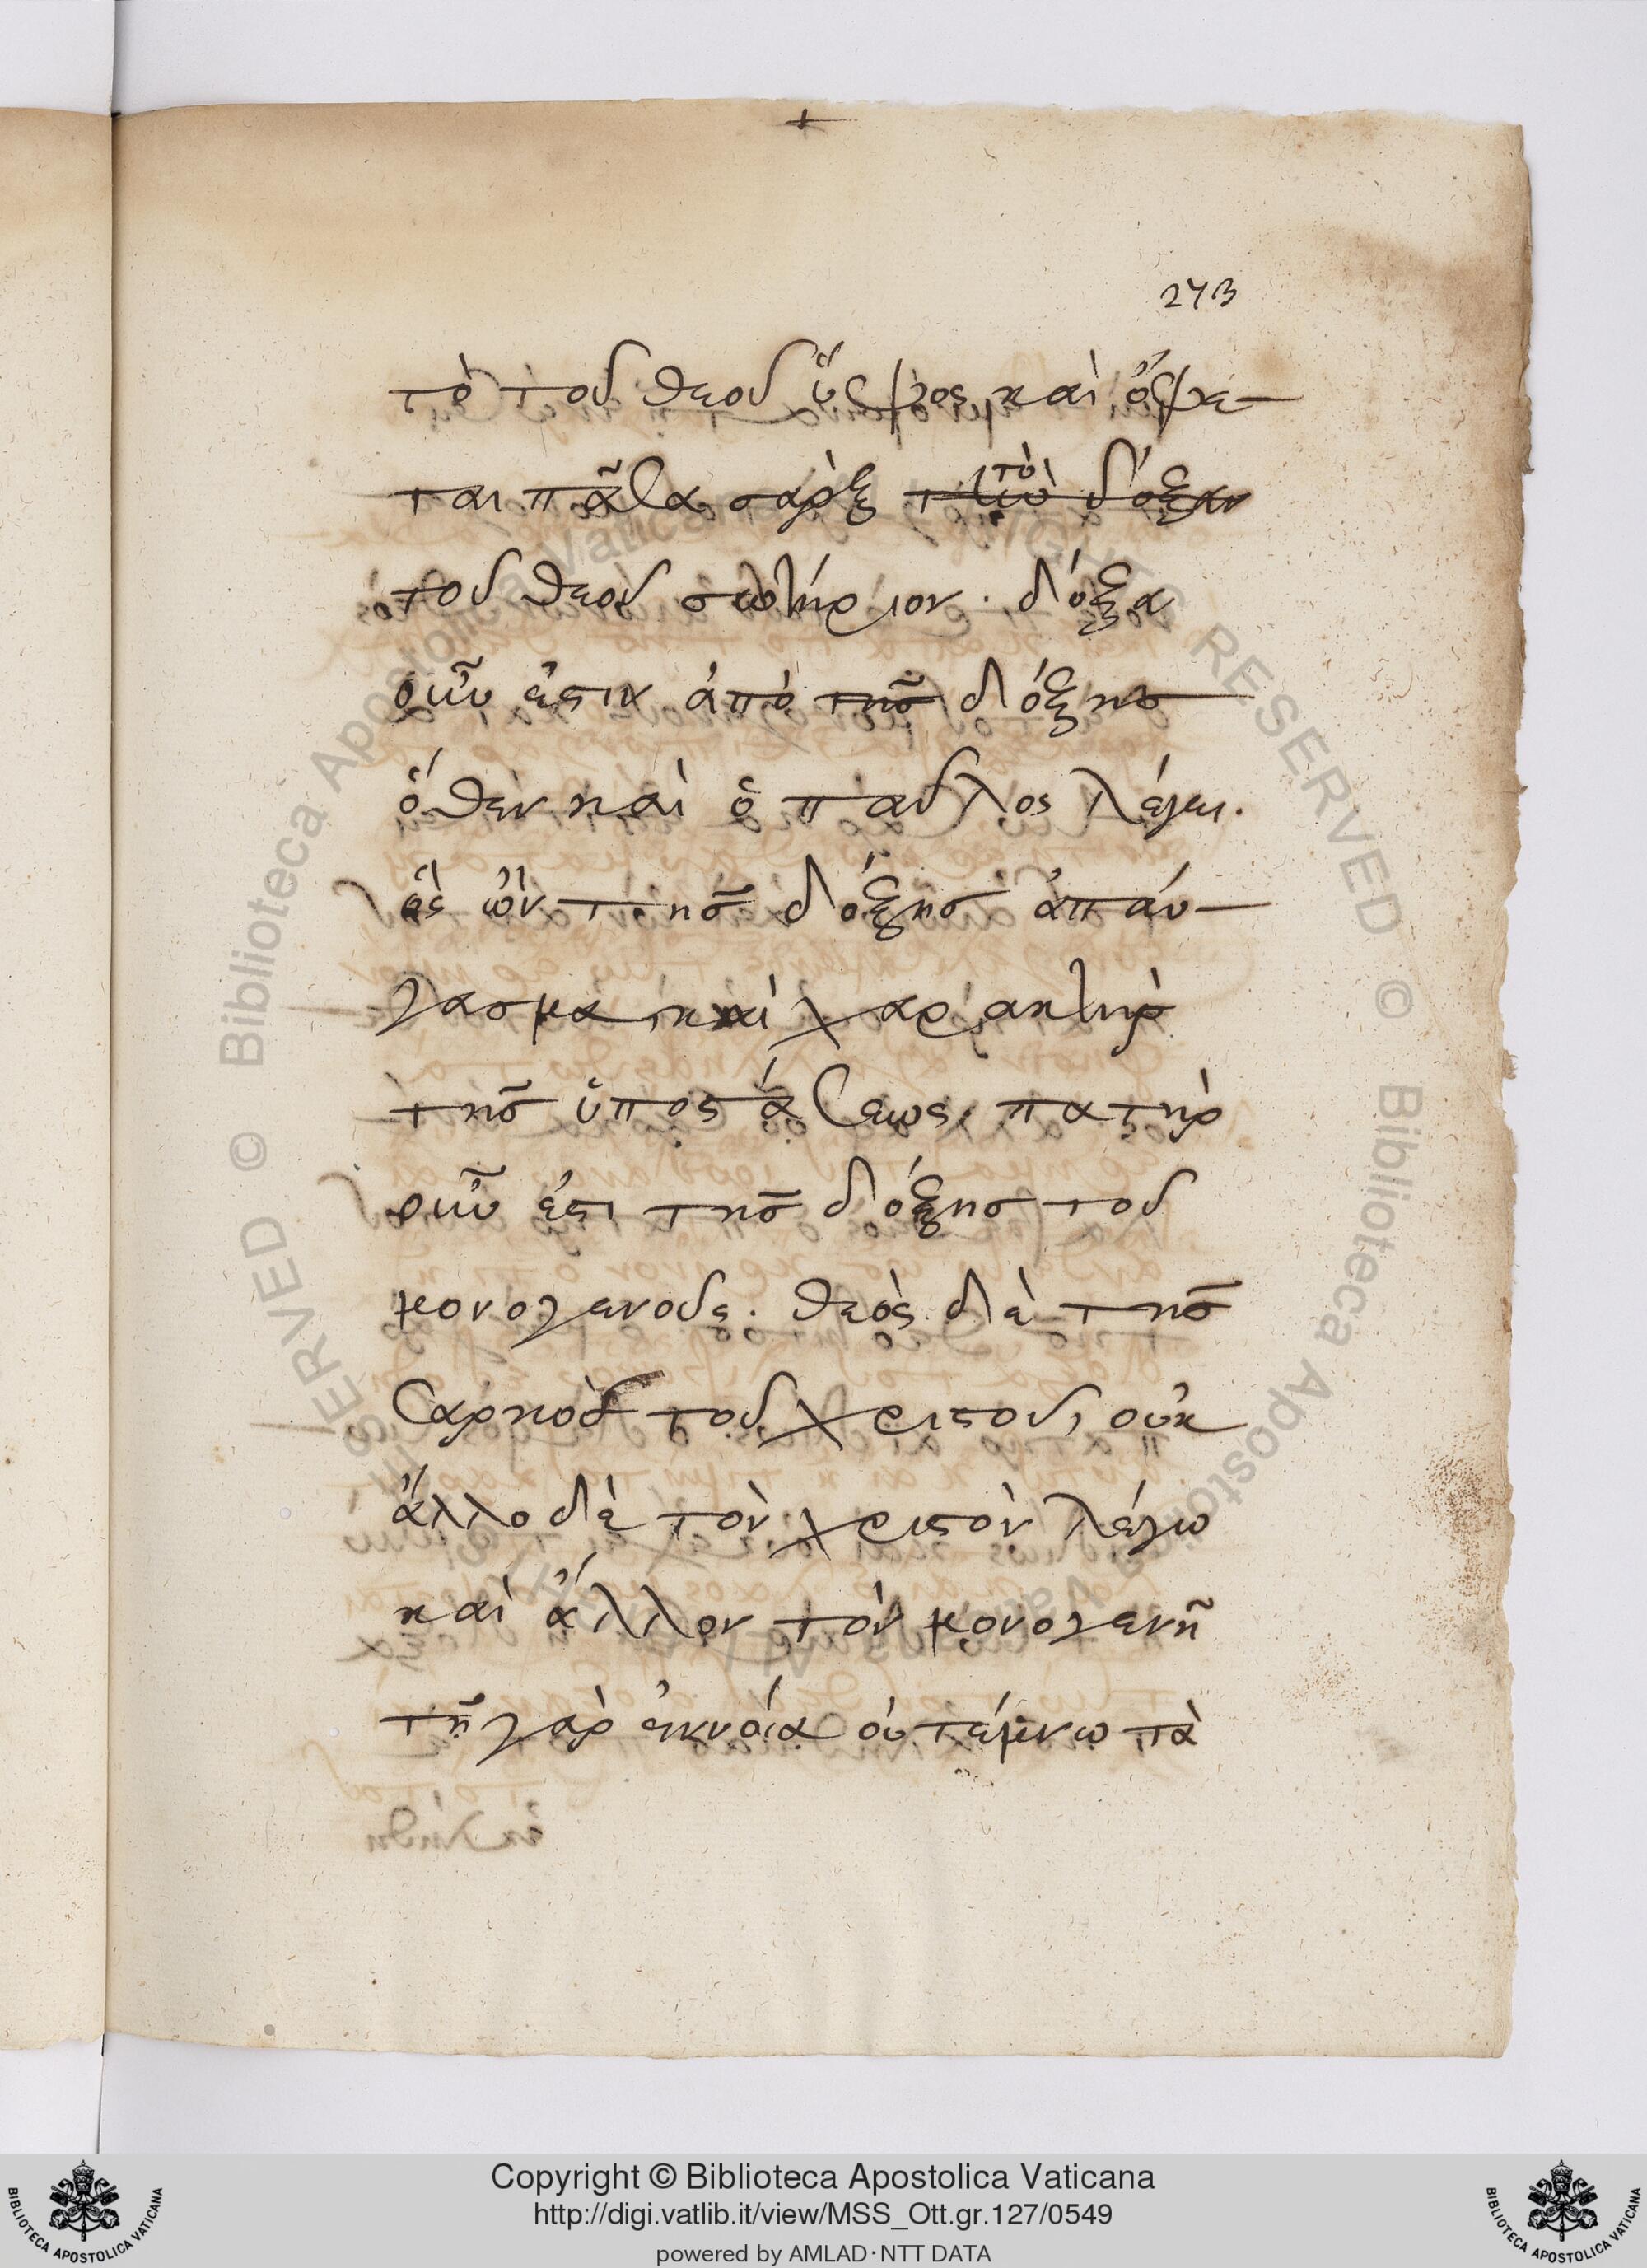 273
τὸ τοῦ θεοῦ ὕψος, καὶ ὄψε-
ται πᾶσα σὰρξ τὴν δόξαν
τὸ
τοῦ θεοῦ σωτήριον. δόξα
οὖν ἐστιν ἀπὸ τῆς δόξης
ὅθεν καὶ ὁ παῦλος λέγει.
ὃς ὢν τῆς δόξης ἀπαύ-
γασμα, καὶ χαρακτὴρ
τῆς ὑποστάσεως, πατὴρ
οὖν ἐστι τῆς δόξης τοῦ
μονογενοῦς. θεὸς δὲ τῆς
σαρκὸς τοῦ χριστοῦ, οὐκ
ἄλλο δὲ τὸν χριστὸν λέγω
καὶ ἄλλον τὸν μονογενῆ
τῇ γὰρ ἐννοία οὐ τέμνω τὰ
Copyright © Biblioteca Apostolica Vaticana
http://digi.vatlib.it/view/MSS_Ott.gr.127/0549
powered by AMLAD·NTT DATA
BIBLIOTECA APOSTOLICA VATICANA
BIBLIOTECA APOSTOLICA VATICANA